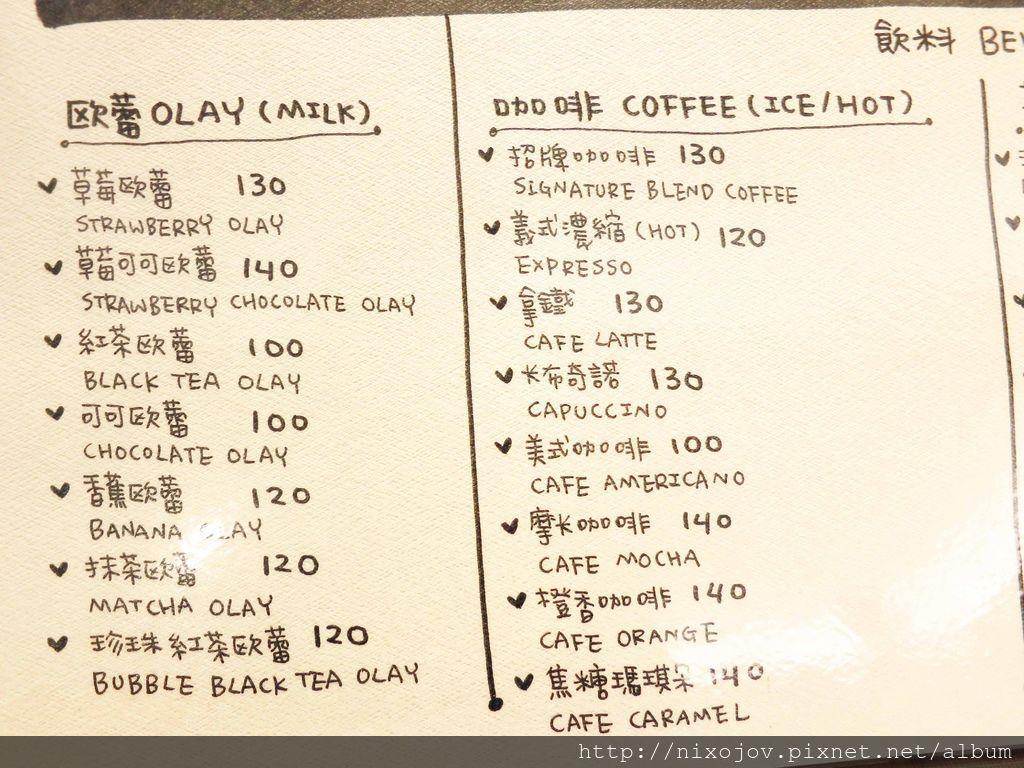 飲料
歐蕾 OLAY (MILK)
草莓歐蕾 130
STRAWBERRY OLAY
草莓可可歐蕾 140
STRAWBERRY CHOCOLATE OLAY
紅茶歐蕾 100
BLACK TEA OLAY
可可歐蕾 100
CHOCOLATE OLAY
香蕉歐蕾 120
BANANA OLAY
抹茶歐蕾 120
MATCHA OLAY
珍珠紅茶歐蕾 120
BUBBLE BLACK TEA OLAY
咖啡 COFFEE (ICE/HOT)
招牌咖啡 130
SIGNATURE BLEND COFFEE
義式濃縮 (HOT) 120
EXPRESSO
拿鐵 130
CAFE LATTE
卡布奇諾 130
CAPUCCINO
美式咖啡 100
CAFE AMERICANO
摩卡咖啡 140
CAFE MOCHA
橙香咖啡 140
CAFE ORANGE
焦糖瑪琪朵 140
CAFE CARAMEL
http://nixojov.pixnet.net/album